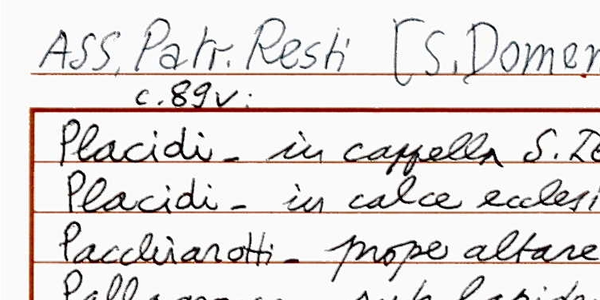 ASS, Patr. Resti [S. Domen
c. 89v:
Placidi - in cappella S.
Placidi - in calce ecclesi
Pacchiarotti - prope altare
sub lapide